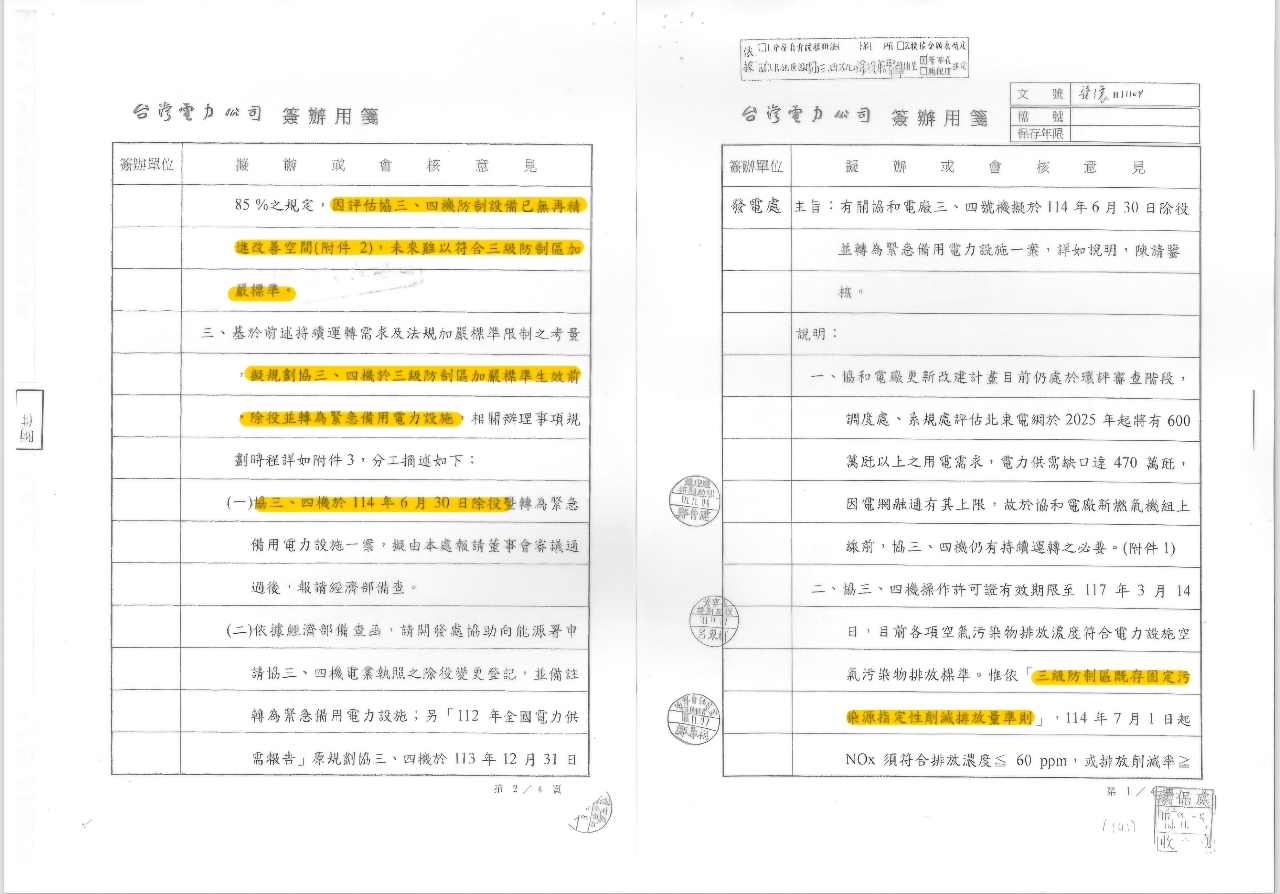 台灣電力公司 簽辦用箋
文號
檔號
保存年限
簽辦單位 擬辦或會核意見
發電處 主旨：有關協和電廠三、四號機擬於 114 年 6 月 30 日除役
並轉為緊急備用電力設施一案，詳如說明，陳請鑒
核。
說明：
一、協和電廠更新改建計畫目前仍處於環評審查階段，
調度處、系規處評估北東電網於 2025 年起將有 600
萬瓩以上之用電需求，電力供需缺口達 470 萬瓩，
因電網融通有其上限，故於協和電廠新燃氣機組上
線前，協三、四機仍有持續運轉之必要。(附件 1)
二、協三、四機操作許可證有效期限至 117 年 3 月 14
日，目前各項空氣污染物排放濃度符合電力設施空
氣污染物排放標準。惟依「三級防制區既存固定污
染源指定性削減排放量準則」，114 年 7 月 1 日起
NOx 須符合排放濃度≦ 60 ppm，或排放削減率≧
第 1／4
台灣電力公司 簽辦用箋
簽辦單位 擬辦或會核意見
85 %之規定，因評估協三、四機防制設備已無再精
進改善空間(附件 2)，未來難以符合三級防制區加
嚴標準。
三、基於前述持續運轉需求及法規加嚴標準限制之考量
，擬規劃協三、四機於三級防制區加嚴標準生效前
，除役並轉為緊急備用電力設施，相關辦理事項規
劃時程詳如附件 3，分工摘述如下：
(一)協三、四機於 114 年 6 月 30 日除役暨轉為緊急
備用電力設施一案，擬由本處報請董事會審議通
過後，報請經濟部備查。
(二)依據經濟部備查函，請開發處協助向能源署申
請協三、四機電業執照之除役變更登記，並備註
轉為緊急備用電力設施；另「112 年全國電力供
需報告」原規劃協三、四機於 113 年 12 月 31 日
第 2／4 頁